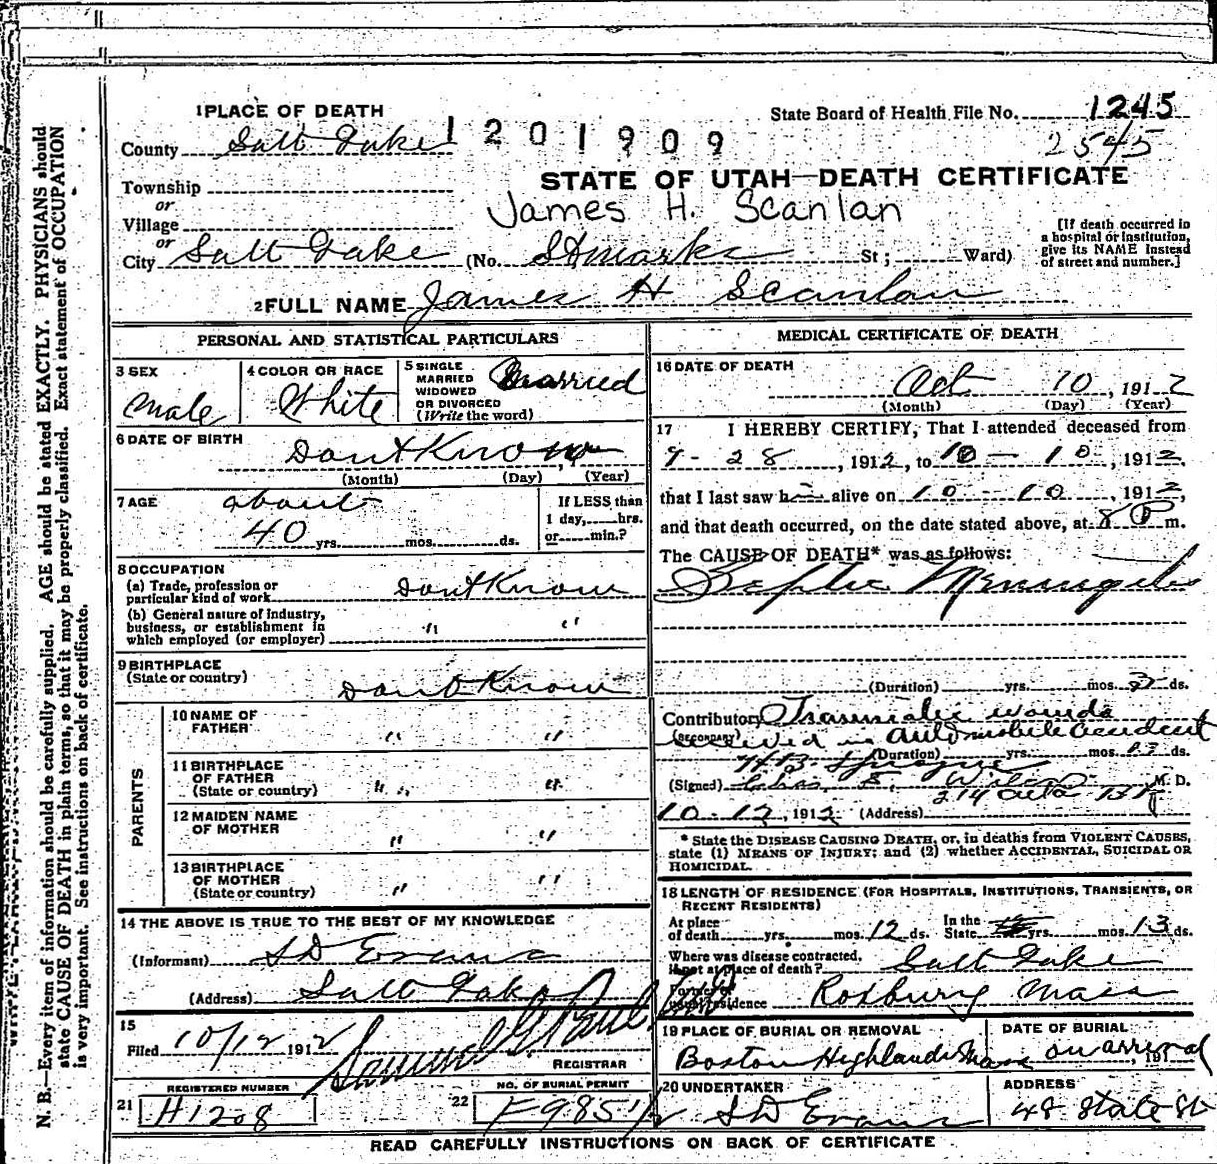 1 PLACE OF DEATH
State Board of Health File No. 1245
County Salt Lake 1201909
2545
Township
STATE OF UTAH—DEATH CERTIFICATE
or
James H. Scanlan
Village
or
[If death occurred in
a hospital or institution,
give its NAME instead
of street and number.]
City Salt Lake (No. St marks St; Ward)
2 FULL NAME James H Scanlan
PERSONAL AND STATISTICAL PARTICULARS
3 SEX
Male
4 COLOR OR RACE
White
5 SINGLE
MARRIED
WIDOWED
OR DIVORCED
(Write the word)
Married
6 DATE OF BIRTH
Dont Know
(Month) (Day) (Year)
7 AGE
about
40 yrs. mos. ds.
If LESS than
1 day, hrs.
or min.?
8 OCCUPATION
(a) Trade, profession or
particular kind of work Dont Know
(b) General nature of industry,
business, or establishment in
which employed (or employer) " "
9 BIRTHPLACE
(State or country)
Dont Know
PARENTS
10 NAME OF
FATHER " "
11 BIRTHPLACE
OF FATHER
(State or country) " " "
12 MAIDEN NAME
OF MOTHER " "
13 BIRTHPLACE
OF MOTHER
(State or country) " "
14 THE ABOVE IS TRUE TO THE BEST OF MY KNOWLEDGE
(Informant) S D Evans
(Address) Salt Lake
15
Filed 10/12 1912
Samuel G. Paul
REGISTRAR
REGISTERED NUMBER
21 H1208
NO. OF BURIAL PERMIT
22 F985½
MEDICAL CERTIFICATE OF DEATH
16 DATE OF DEATH
Oct 10, 1912
(Month) (Day) (Year)
17 I HEREBY CERTIFY, That I attended deceased from
9-28, 1912, to 10-10, 1912,
that I last saw h alive on 10-10, 1912,
and that death occurred, on the date stated above, at 8 P m.
The CAUSE OF DEATH* was as follows:
Septic Meningitis
(Duration) yrs. mos. ds.
Contributory Traumatic wounds
(SECONDARY)
received in Automobile accident
(Duration) yrs. mos. 13 ds.
(Signed) Chas. F. M. D.
10-12, 1912 (Address) 214
* State the DISEASE CAUSING DEATH, or, in deaths from VIOLENT CAUSES,
state (1) MEANS OF INJURY; and (2) whether ACCIDENTAL, SUICIDAL OR
HOMICIDAL.
18 LENGTH OF RESIDENCE (FOR HOSPITALS, INSTITUTIONS, TRANSIENTS, OR
RECENT RESIDENTS)
At place
of death yrs. mos. 12 ds.
In the
State yrs. mos. 13 ds.
Where was disease contracted,
if not at place of death? Salt Lake
Former or
usual residence Roxbury Mass
19 PLACE OF BURIAL OR REMOVAL
Boston Highlands Mass
DATE OF BURIAL
on arrival, 191
20 UNDERTAKER
S D Evans
ADDRESS
48 State St
READ CAREFULLY INSTRUCTIONS ON BACK OF CERTIFICATE
N. B.—Every item of information should be carefully supplied. AGE should be stated EXACTLY. PHYSICIANS should
state CAUSE OF DEATH in plain terms, so that it may be properly classified. Exact statement of OCCUPATION
is very important. See instructions on back of certificate.